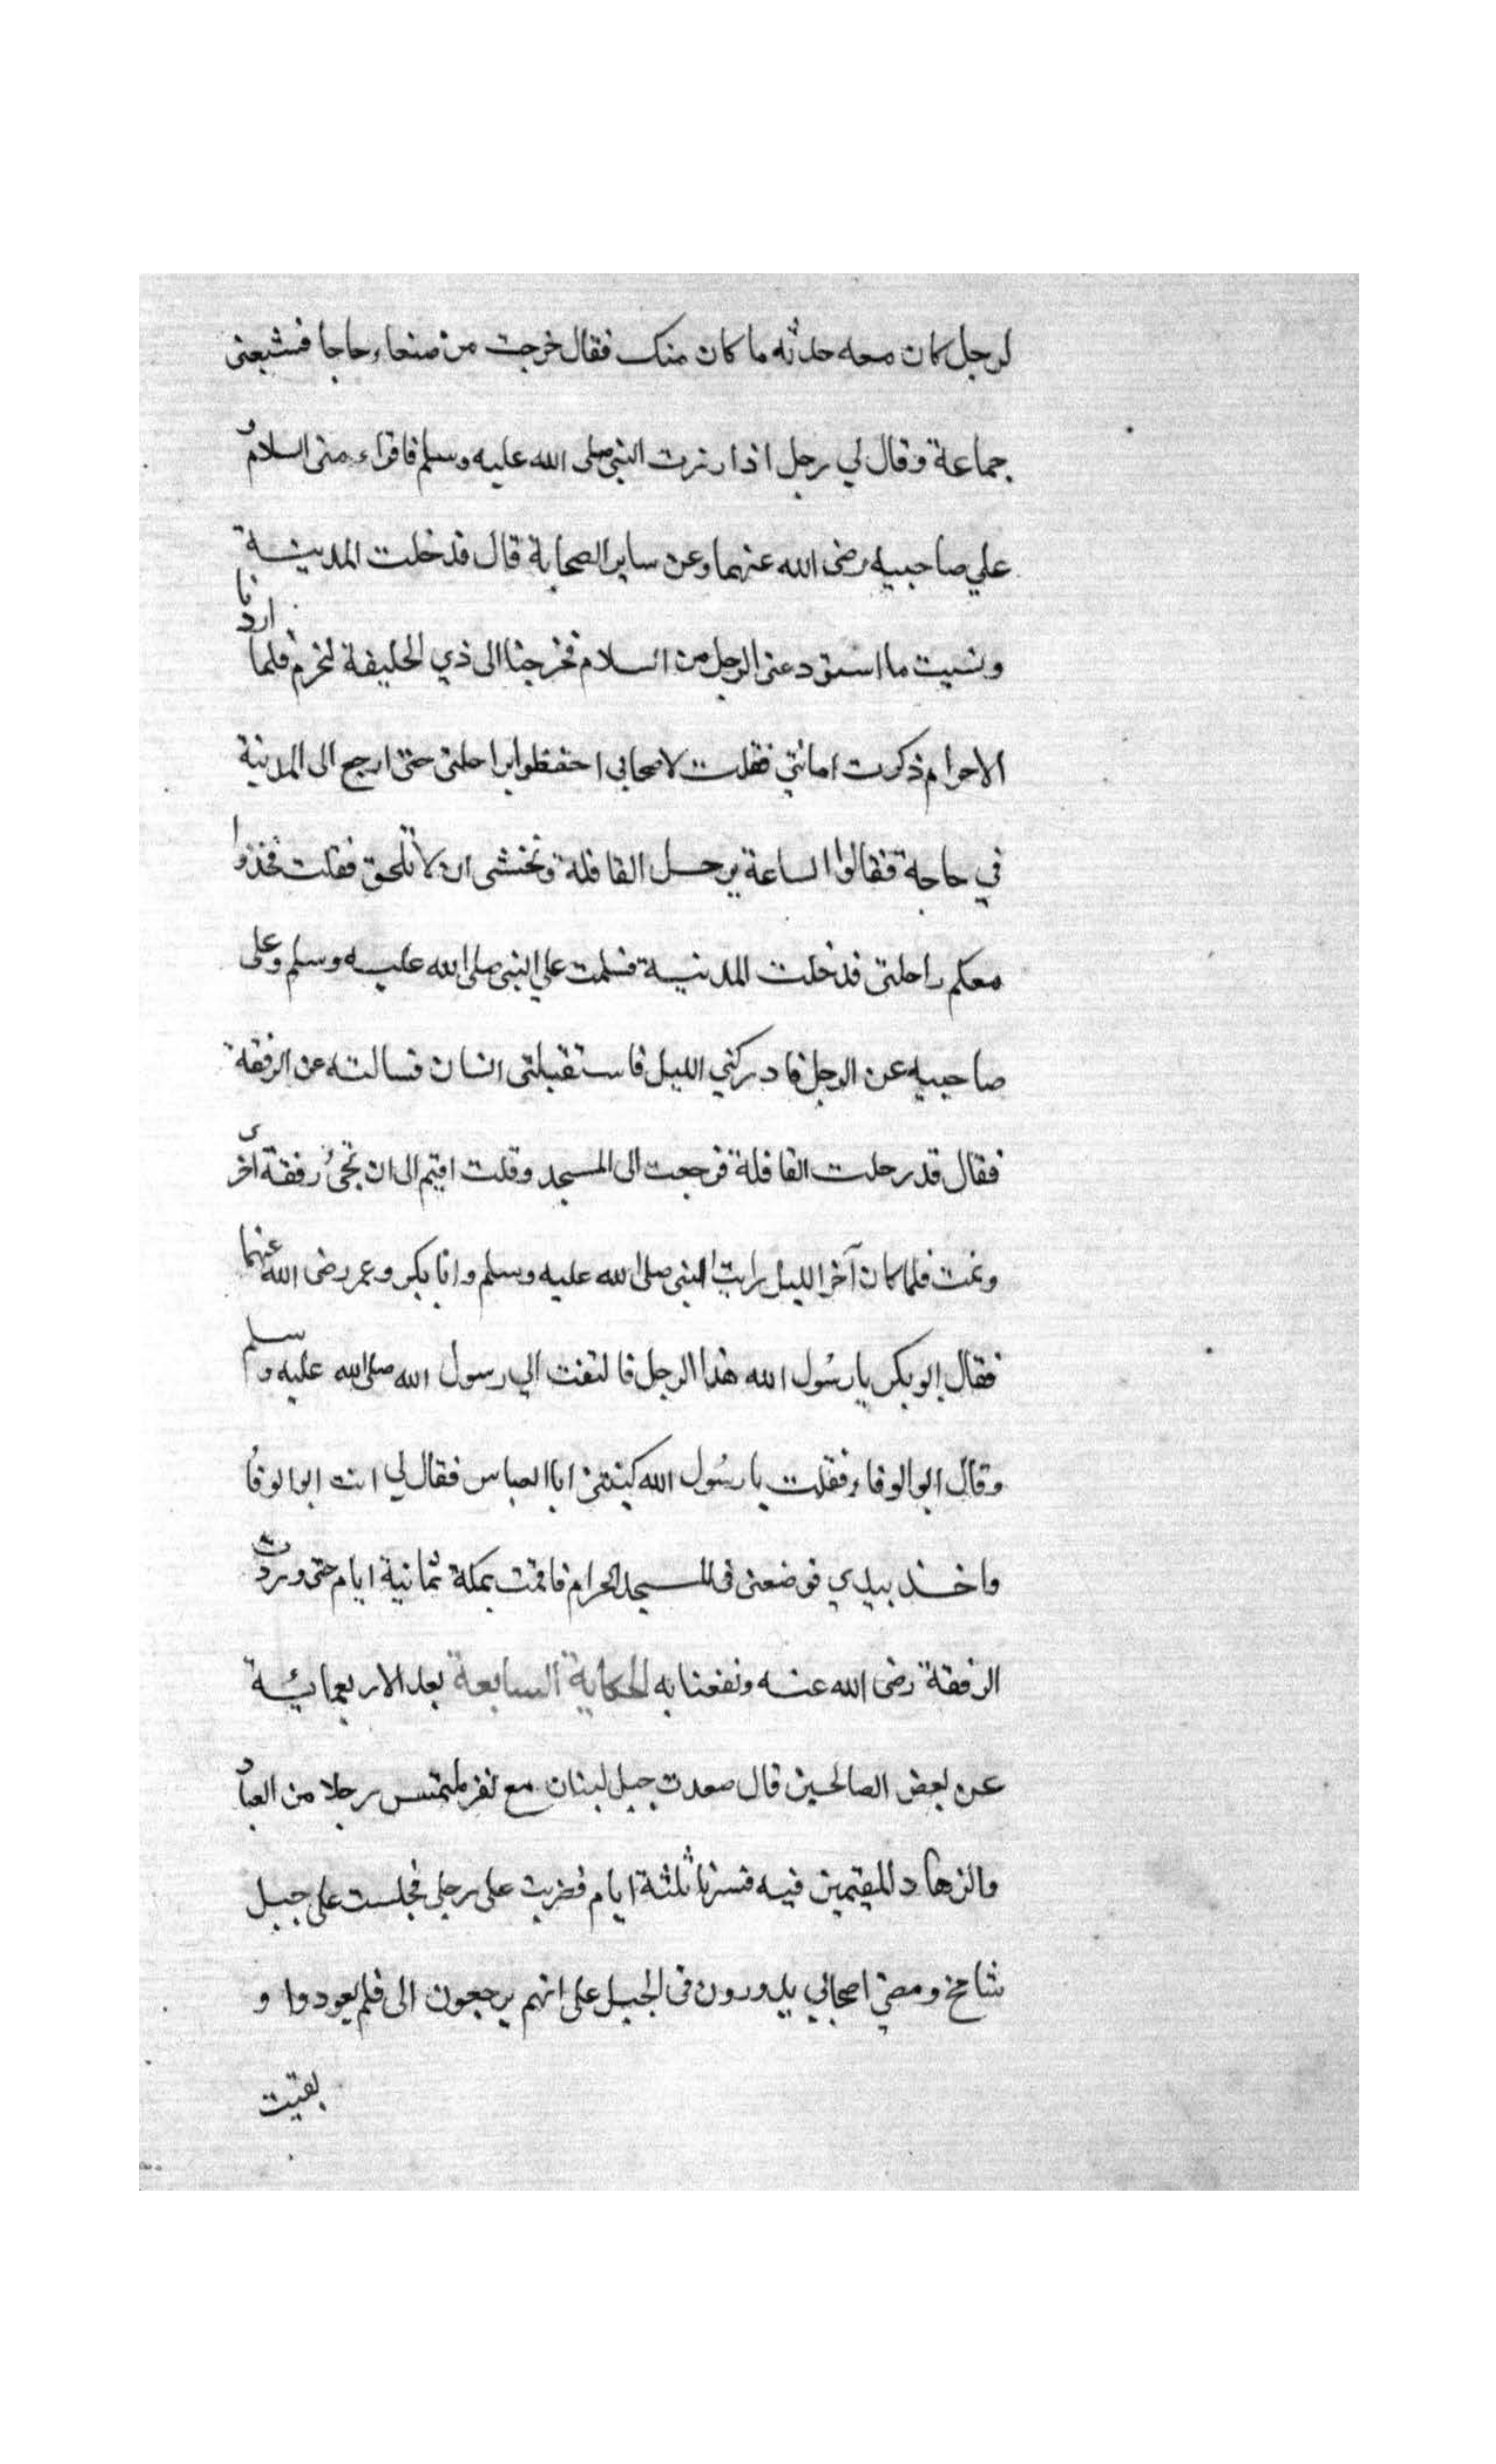 لرجل كان معه حدثه ما كان منك فقال خرجت من صنعاء حاجا فشيعنى
جماعة وقال لي رجل اذا زرت النبى صلى الله عليه وسلم فاقراء منى السلام و
علي صاحبيه رضى الله عنهما وعن ساير الصحابة قال فدخلت المدينة
ونسيت ما استودعنى الرجل من السلام فخرجنا الى ذي الحليفة لنحرم فلما اردنا
الاحرام ذكرت امانتي فقلت لاصحابي احفظوا براحلتى حتى ارجع الى المدينة
في حاجة فقالوا الساعة يرحل القافلة ونخشى ان لا تلحق فقلت فخذوا
معكم راحلتى فدخلت المدينة فسلمت علي النبى صلى الله عليه وسلم وعلى
صاحبيه عن الرجل فادركني الليل فاستقبلنى انسان فسالته عن الرفقة
فقال قد رحلت القافلة فرجعت الى المسجد وقلت اقيم الى ان تجئ رفقة اخرى
ونمت فلما كان آخر الليل رايت النبى صلى الله عليه وسلم وابا بكر وعمر رضى الله عنهما
فقال ابو بكر يا رسُول الله هذا الرجل فالتفت الي رسول الله صلى الله عليه وسلم
وقال ابو الوفاء فقلت يا رسُول الله كنيتى ابا العباس فقال لي انت ابو الوفا
واخذ بيدي فوضعنى فى المسجد الحرام فاقمت بمكة ثمانية ايام حتى وردت
الرفقة رضى الله عنه ونفعنا به الحكاية السابعة بعد الاربعمائة
عن بعض الصالحين قال صعدت جبل لبنان مع نفر نلتمس رجلا من العباد
والزهاد المقيمين فيه فسرنا ثلثة ايام فضربت على رجلى فجلست على جبل
شامخ ومضي اصحابي يدورون فى الجبل على انهم يرجعون الى فلم يعودوا و
بقيت